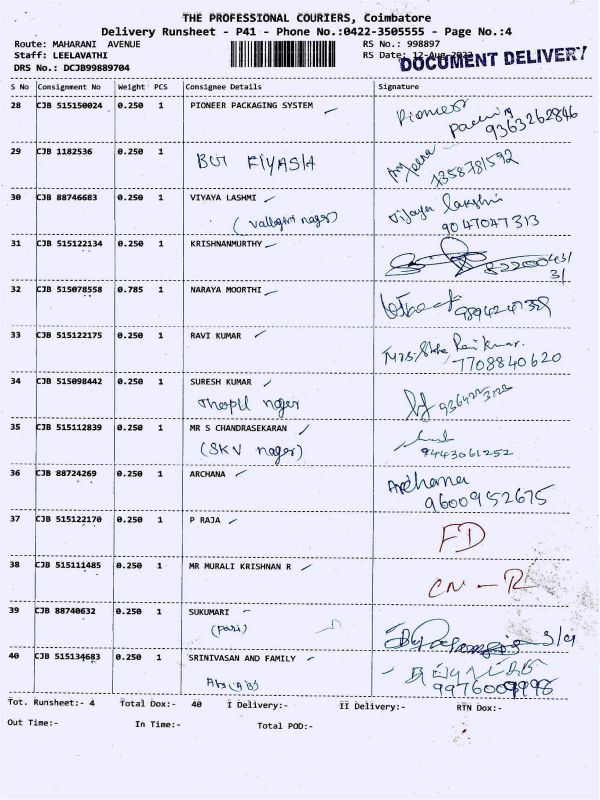 THE PROFESSIONAL COURIERS, Coimbatore
Delivery Runsheet - P41 - Phone No.:0422-3505555 - Page No.:4
Route: MAHARANI AVENUE RS No.: 998897
Staff: LEELAVATHI RS Date: 12-Aug-2022
DRS No.: DCJB99889704 DOCUMENT DELIVERY
S No Consignment No Weight PCS Consignee Details Signature
28 CJB 515150024 0.250 1 PIONEER PACKAGING SYSTEM Pioneer
9363262846
29 CJB 1182536 0.250 1
7358781592
30 CJB 88746683 0.250 1 VIJAYA LASHMI Vijaya lakshmi
nager) 9047047313
31 CJB 515122134 0.250 1 KRISHNANMURTHY
32 CJB 515078558 0.785 1 NARAYA MOORTHI
33 CJB 515122175 0.250 1 RAVI KUMAR Ravi kumar.
7708840620
34 CJB 515098442 0.250 1 SURESH KUMAR
nager
35 CJB 515112839 0.250 1 MR S CHANDRASEKARAN
(SKV nager) 9443061252
36 CJB 88724269 0.250 1 ARCHANA Archana
9600952675
37 CJB 515122170 0.250 1 P RAJA FD
38 CJB 515111485 0.250 1 MR MURALI KRISHNAN R CN - R
39 CJB 88740632 0.250 1 SUKUMARI
(pari) 3/9
40 CJB 515134683 0.250 1 SRINIVASAN AND FAMILY
Tot. Runsheet:- 4 Total Dox:- 40 I Delivery:- II Delivery:- RTN Dox:-
Out Time:- In Time:- Total POD:-